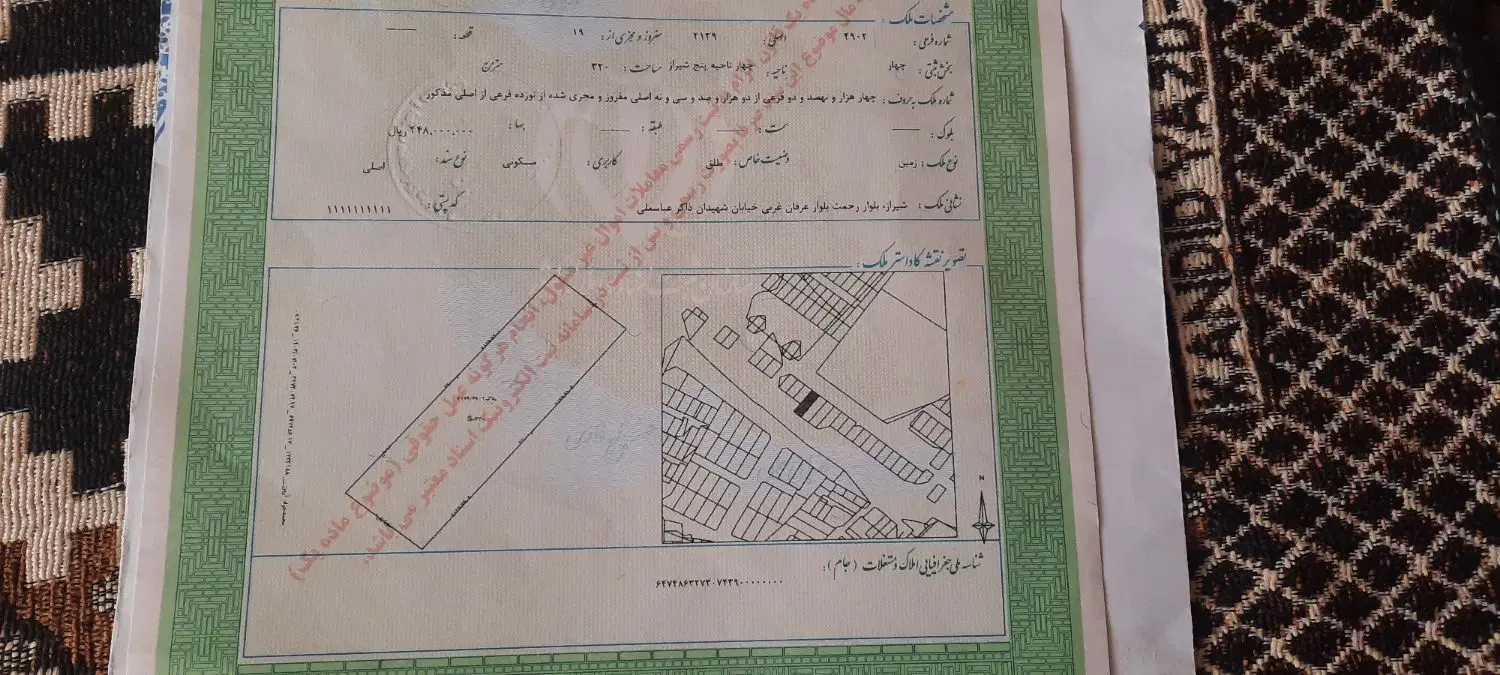 مشخصات ملک :
شماره فرعی : ۴۹۰۲ اصلی : ۲۱۳۹ مفروز و مجزی از : ۱۹ قطعه :
بخش ثبتی : چهار ناحیه : چهار ناحیه پنج شیراز مساحت : ۳۲۰ مترمربع
شماره ملک به حروف : چهار هزار و نهصد و دو فرعی از دو هزار و صد و سی و نه اصلی مفروز و مجزی شده از نوزده فرعی از اصلی مذکور
بلوک : سمت : طبقه : بها : ۲۴۸,۰۰۰,۰۰۰ ریال
نوع ملک : زمین وضعیت خاص : طلق کاربری : مسکونی نوع سند : اصلی
نشانی ملک : شیراز، بلوار رحمت بلوار عرفان غربی خیابان شهیدان ذاکر عباسعلی کد پستی : ۱۱۱۱۱۱۱۱۱۱
تصویر نقشه کاداستر ملک :
N
شناسه ملی جغرافیایی املاک و مستغلات (جام) :
انجام هرگونه عمل حقوقی (موضوع ماده یک)
پس از ثبت در سامانه ثبت الکترونیک اسناد معتبر می باشد.